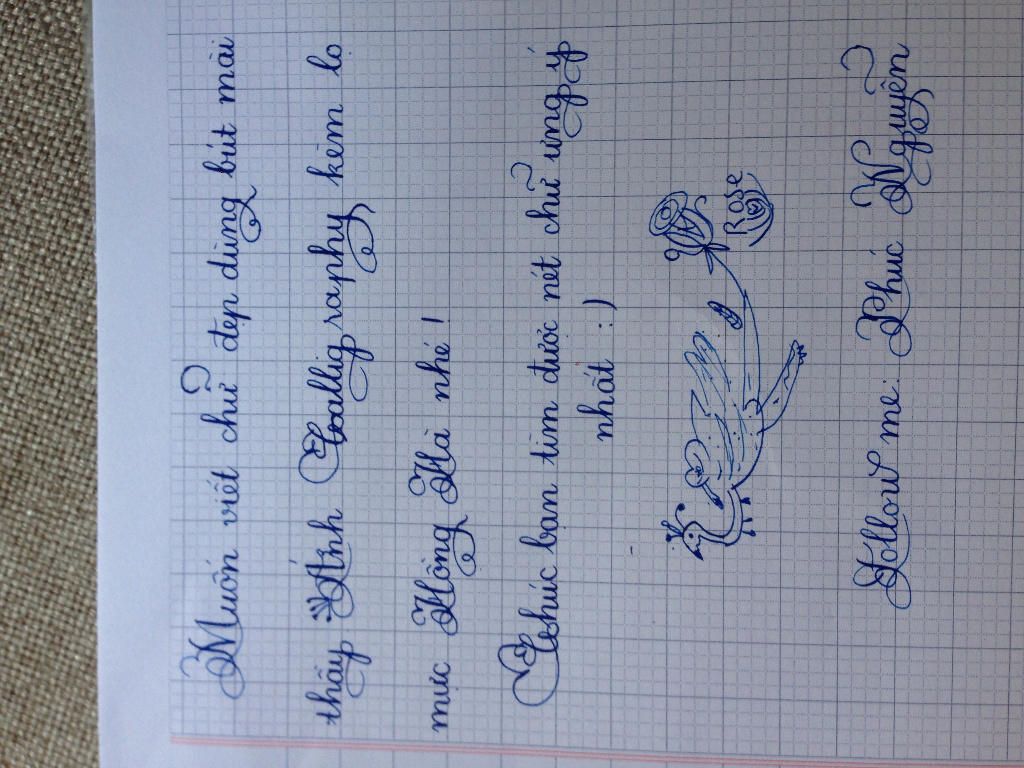 Muốn viết chữ đẹp dùng bút mài
thầy Ánh Calligraphy kèm lọ
mực Hồng Hà nhé!
Chúc bạn tìm được nét chữ ưng ý
nhất :)
Rose
Follow me: Phúc Nguyễn